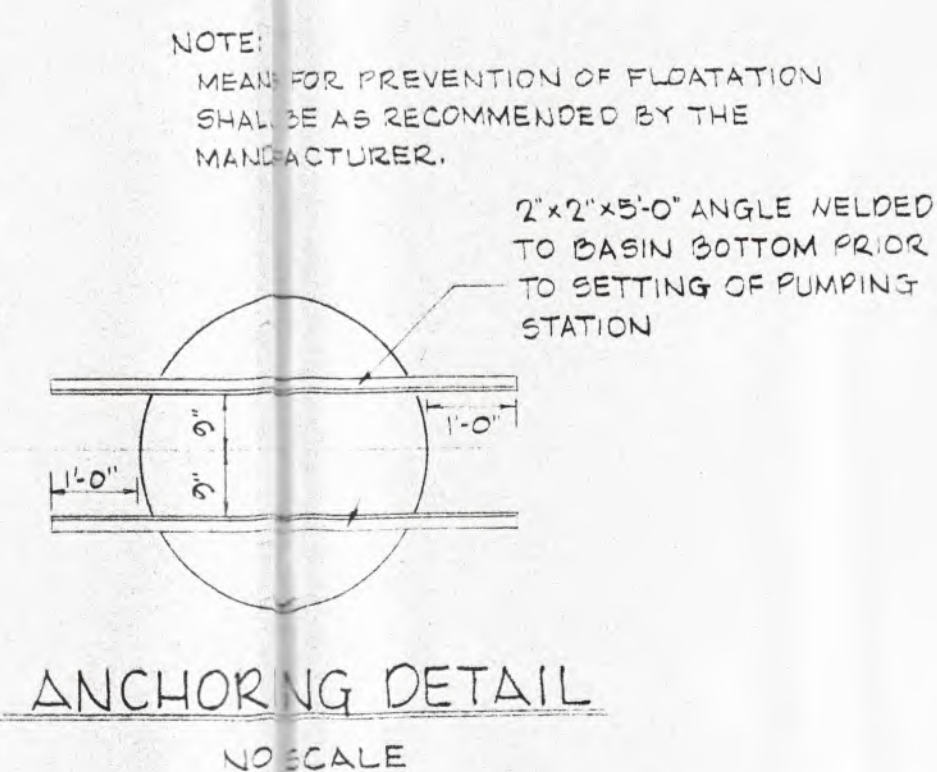 NOTE:
MEANS FOR PREVENTION OF FLOATATION
SHALL BE AS RECOMMENDED BY THE
MANUFACTURER.
2"x2"x5'-0" ANGLE WELDED
TO BASIN BOTTOM PRIOR
TO SETTING OF PUMPING
STATION
1'-0"
9"
1'-0"
9"
ANCHORING DETAIL
NO SCALE